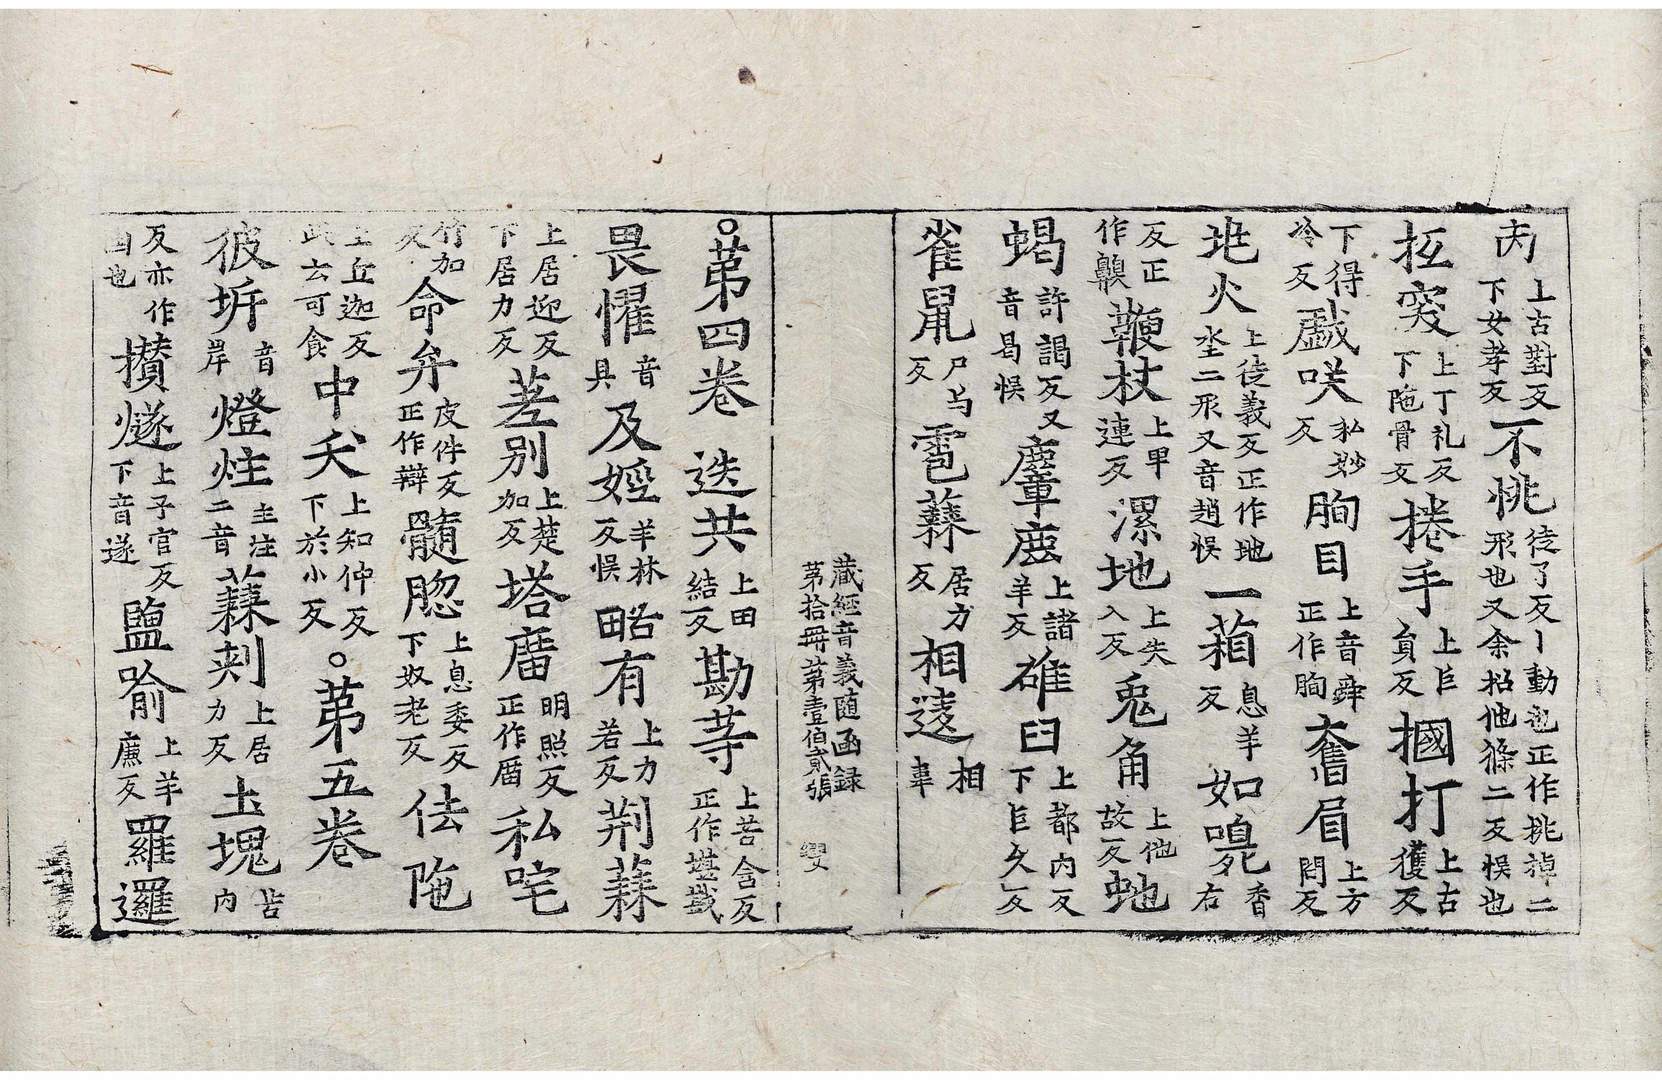 丙上古對反下女孝反不恌徒了反丨動也正作挑掉二形也又余招他條二反悮也
抂突上丁礼反下陁骨反捲手上巨員反摑打上古獲反
下得冷反戱咲私妙反眴目上音舜正作眴奮眉上方問反
地火上徒義反正作地坔二形又音趙悮一箱息羊反如嗅香右
反正作齅鞭杖上卑連反漯地上失入反兎角上他故反虵
蝎許謁反又音曷悮麞鹿上諸羊反碓臼上都內反下巨久反
雀鼠尸与反雹蕀居力反相遠相車
藏經音義随函録
苐拾冊苐壹伯貳張
○苐四卷 迭共上田結反勘䓁上苦含反正作堪戡
畏懼音具及婬羊林反悮略有上力若反荆蕀
上居迎反下居力反荖别上楚加反塔庿明照反正作庿私咤
竹加反命弁皮件反正作辯髓𦛁上息委反下奴老反佉陁
上丘迦反此云可食中夭上知仲反下於小反○苐五卷
彼㘱音岸燈炷主注二音蕀刺上居力反土塊苦內
反亦作凷也攢燧上子官反下音遂鹽喻上羊廉反羅邏